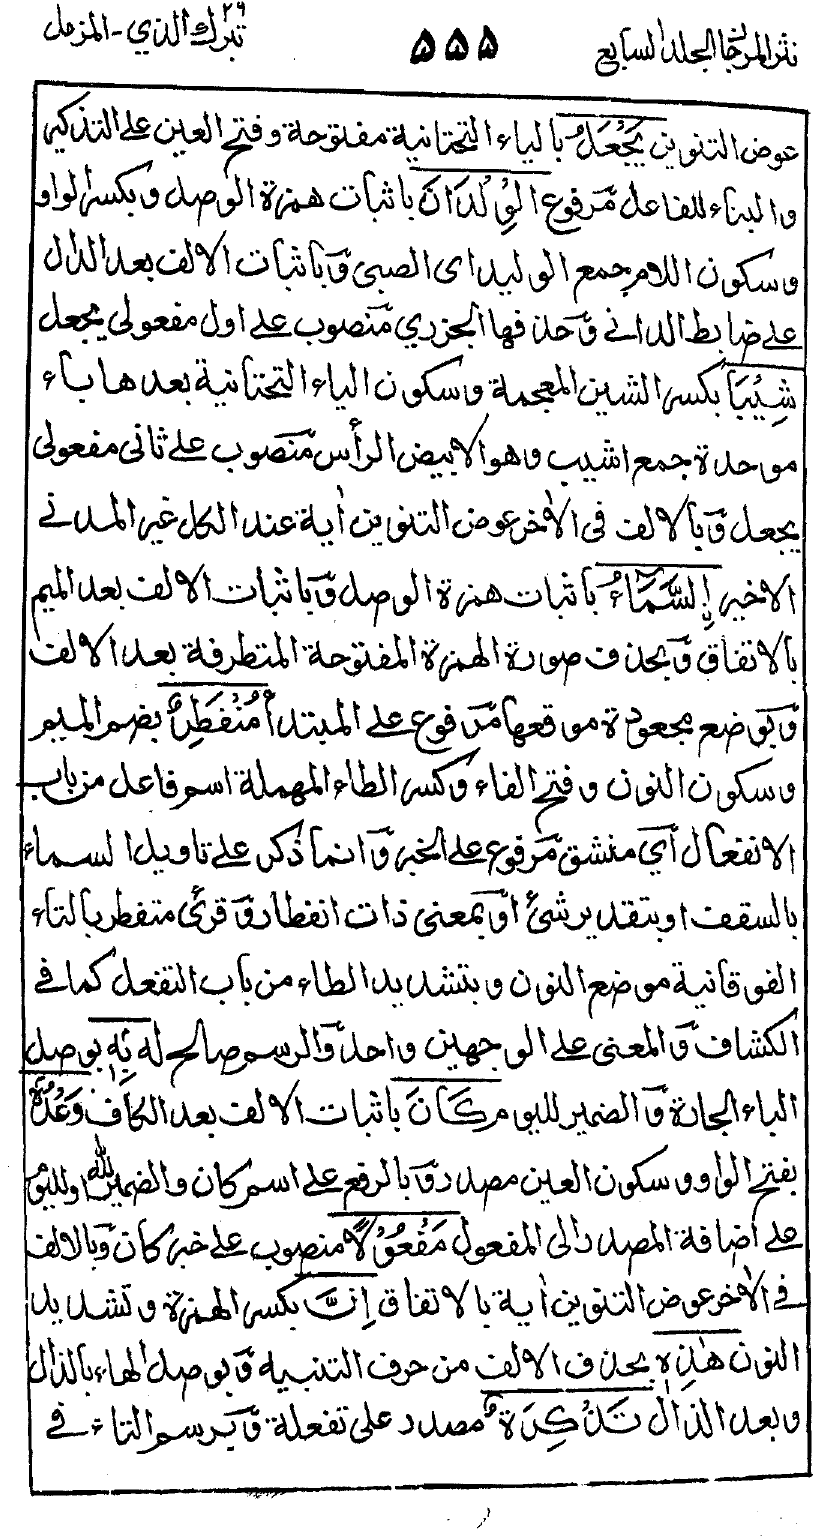 نثر المرجان المجلد السابع
۵۵۵
تبرك الذي ۲۹ - المزمل
عوض التنوين يَجْعَلُ بالياء التحتانية مفتوحة وفتح العين على التذكير
والبناء للفاعل مرفوع الْوِلْدَانَ باثبات همزة الوصل وبكسر الواو
وسكون اللام جمع الوليد اى الصبى وباثبات الالف بعد الدال
على ضابط الداني وحذفها الجزري منصوب على اول مفعولي يجعل
شِيْبَا بكسر الشين المعجمة وسكون الياء التحتانية بعدها باء
موحدة جمع اشيب وهو الابيض الرأس منصوب على ثانى مفعولى
يجعل وبالالف فى الاخر عوض التنوين اية عند الكل غير المدني
الاخير اِلسَّمَاءُ باثبات همزة الوصل وباثبات الالف بعد الميم
بالاتفاق وبحذف صورة الهمزة المفتوحة المتطرفة بعد الالف
وبوضع مجعودة موقعها مرفوع على المبتدأ مُنْفَطِرٌ بضم الميم
وسكون النون وفتح الفاء وكسر الطاء المهملة اسم فاعل من باب
الانفعال أي منشق مرفوع على الخبر وانما ذكر على تاويل السماء
بالسقف او بتقدير شئ او بمعنى ذات انفطار وقرئ متفطر بالتاء
الفوقانية موضع النون وبتشديد الطاء من باب التفعل كما في
الكشاف والمعنى على الوجهين واحد والرسم صالح له بِهٖ بوصل
الباء الجارة والضمير لليوم كَانَ باثبات الالف بعد الكاف وَعْدُهٗ
بفتح الواو وسكون العين مصدر وبالرفع على اسم كان والضمير لله او لليوم
على اضافة المصدر الى المفعول مَفْعُوْلًا منصوب على خبر كان وبالالف
في الاخر عوض التنوين اية بالاتفاق اِنَّ بكسر الهمزة وتشديد
النون هٰذِهٖ بحذف الالف من حرف التنبيه وبوصل الهاء بالذال
وبعد الذال تَذْكِرَةٌ مصدر على تفعلة وبرسم التاء في